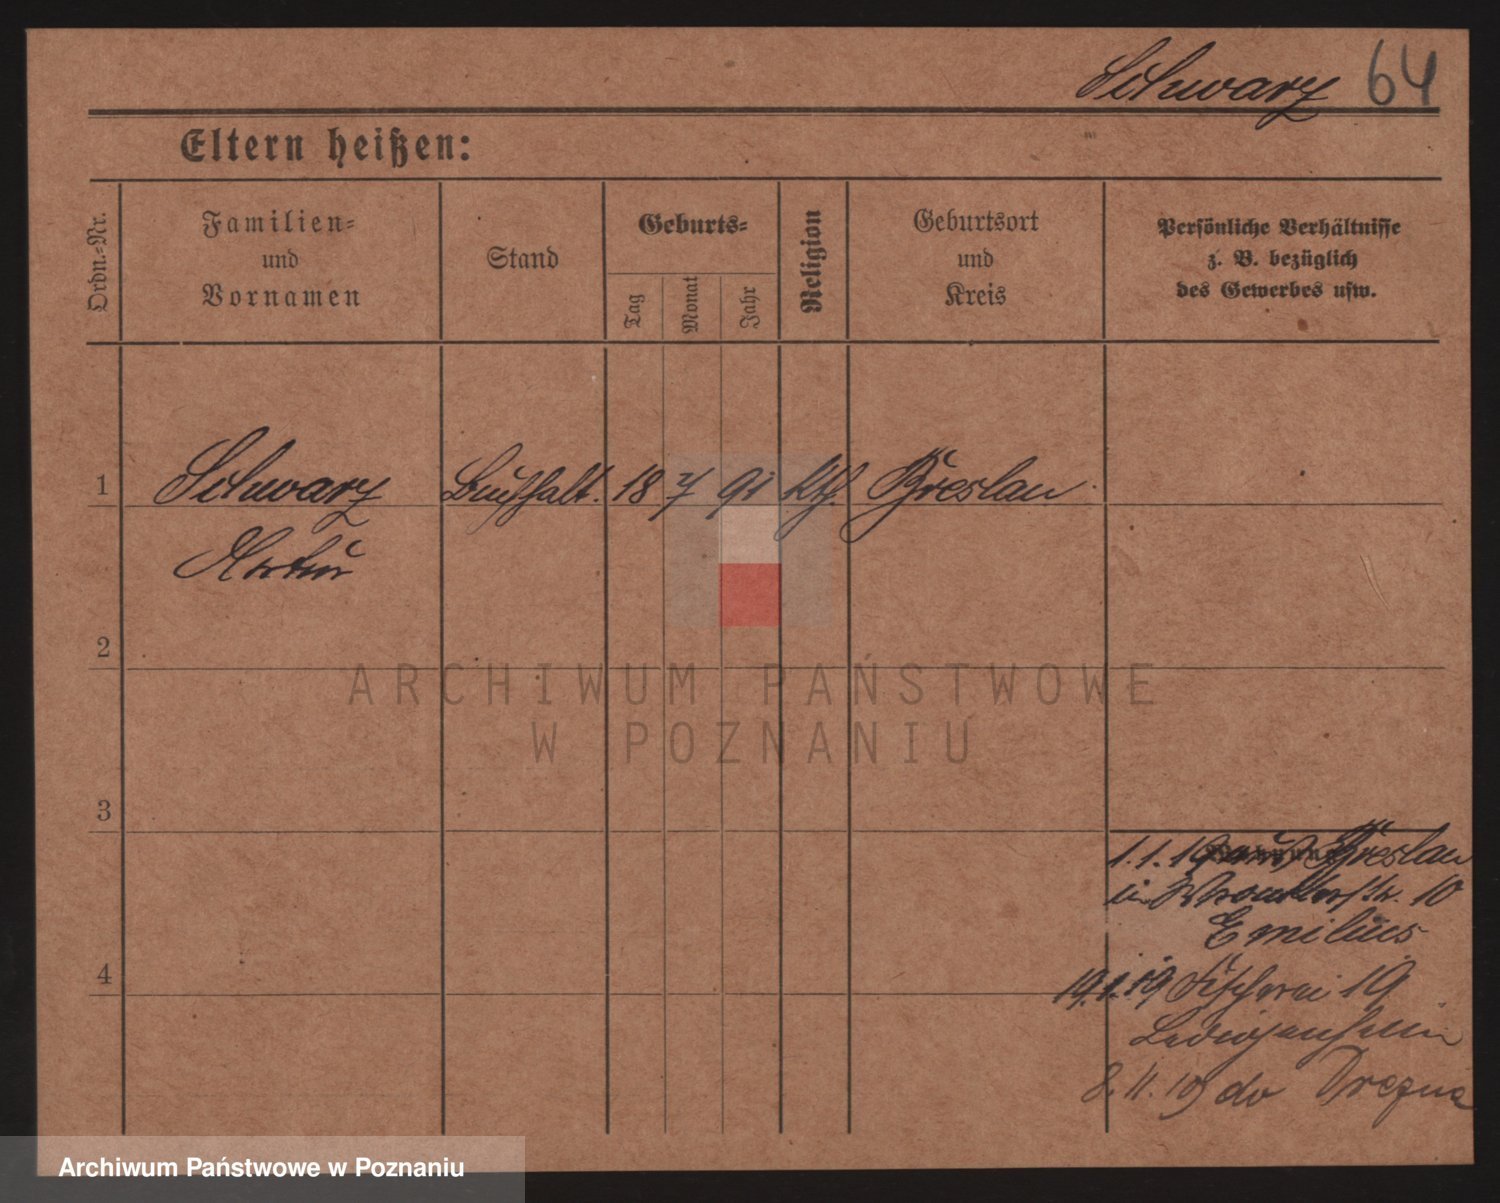 Schwarz 64
Eltern heißen:
Ordn.-Nr.
Familien-
und
Vornamen
Stand
Geburts-
Tag
Monat
Jahr
Religion
Geburtsort
und
Kreis
Persönliche Verhältnisse
z. B. bezüglich
des Gewerbes usw.
1 Schwarz Buchhalt. 18 7 91 kth. Breslau
Artur
2
3
1.1.19 aus Breslau
10
Emilius
4
19.1.19 Fischerei 19
Ledigenheim
8.11.19 do Drezna
ARCHIWUM PAŃSTWOWE
W POZNANIU
Archiwum Państwowe w Poznaniu